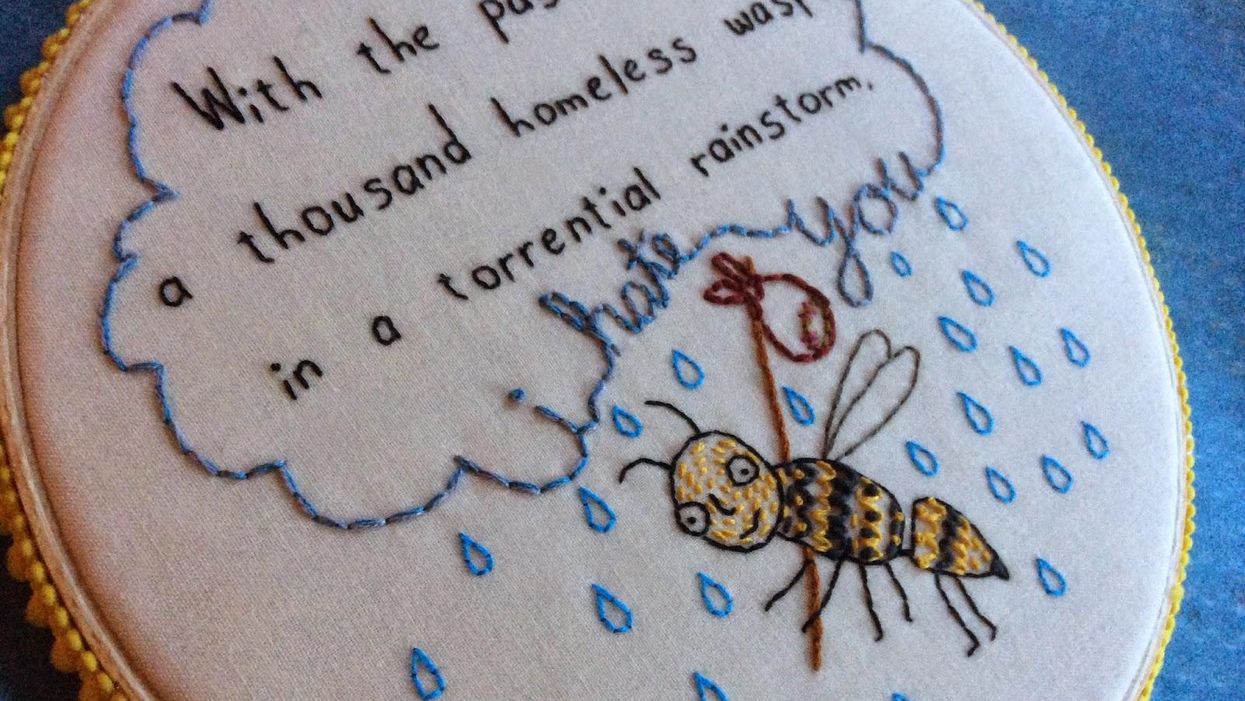 With the pas
a thousand homeless wasp
in a torrential rainstorm.
hate you